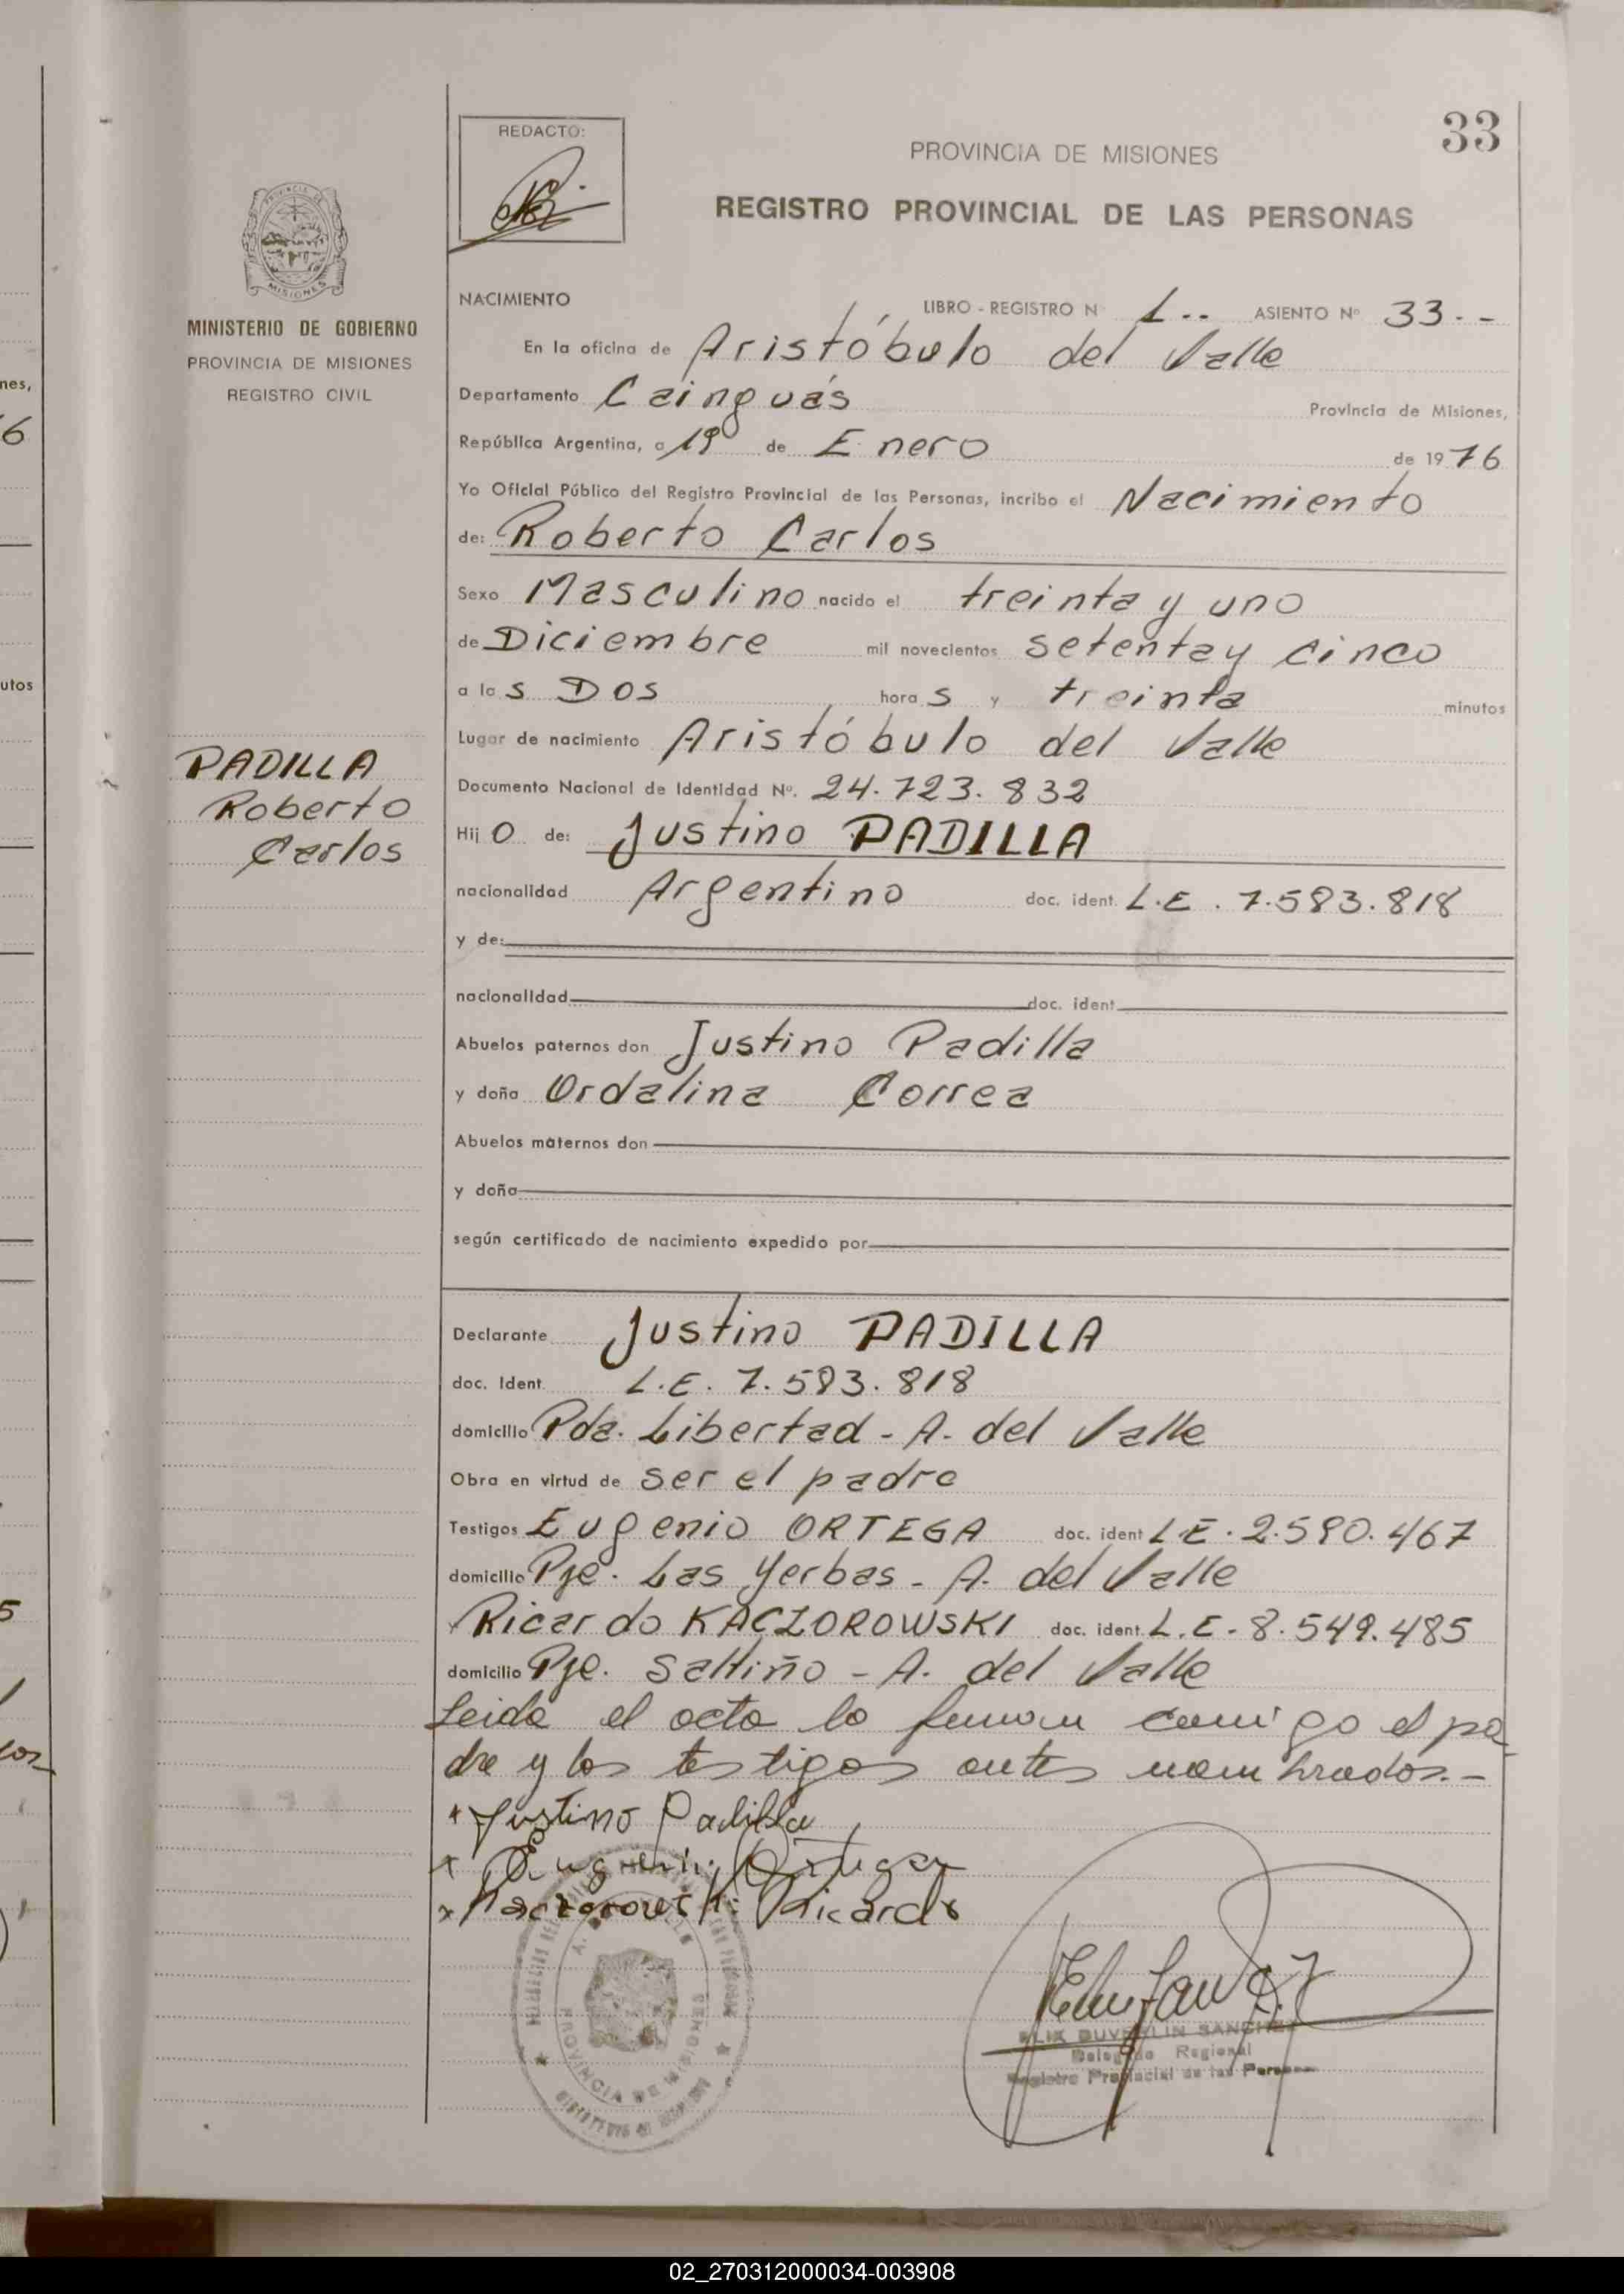 33
REDACTO:
PROVINCIA DE MISIONES
REGISTRO PROVINCIAL DE LAS PERSONAS
PROVINCIA DE
MISIONES
MINISTERIO DE GOBIERNO
PROVINCIA DE MISIONES
REGISTRO CIVIL
NACIMIENTO LIBRO - REGISTRO N 1 -- ASIENTO Nº 33 - -
En la oficina de Aristóbulo del Valle
Departamento Cainguás Provincia de Misiones,
República Argentina, a 19 de Enero de 1976
Yo Oficial Público del Registro Provincial de las Personas, incribo el Nacimiento
de: Roberto Carlos
Sexo Masculino nacido el treinta y uno
de Diciembre mil novecientos setenta y cinco
a las Dos horas y treinta minutos
Lugar de nacimiento Aristóbulo del Valle
PADILLA
Roberto
Carlos
Documento Nacional de Identidad Nº. 24.723.832
Hijo de: Justino PADILLA
nacionalidad Argentino doc. ident. L.E. 7.583.818
y de:
nacionalidad doc. ident
Abuelos paternos don Justino Padilla
y doña Ordalina Correa
Abuelos maternos don
y doña
según certificado de nacimiento expedido por
Declarante Justino PADILLA
doc. Ident. L.E. 7.583.818
domicilio Pda. Libertad - A. del Valle
Obra en virtud de ser el padre
Testigos Eugenio ORTEGA doc. ident L.E. 2.580.467
domicilio Pje. Las Yerbas - A. del Valle
Ricardo KACZOROWSKI doc. ident. L.E. 8.549.485
domicilio Pje. Saltiño - A. del Valle
Leida el acta la firman conmigo el pa
dre y los testigos antes nombrados.-
Justino Padilla
Eugenio Ortega
x Kaczorowski Ricardo
PROVINCIA DE MISIONES
DUVERLIN SANCHEZ
Delegado Regional
Registro Provincial de las Personas
nes,
6
utos
5
02_270312000034-003908